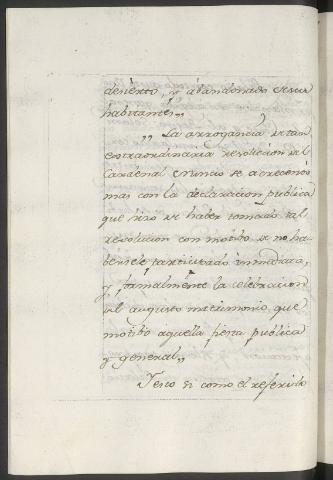 desierto, y abandonado de sus
habitantes„
„ La arrogancia de tan
extraordinaria resolucion del
Cardenal Nuncio se acrecentó
mas con la declaracion publica
que hizo de haver tomado tal
resolucion con motibo de no ha-
bersele participado inmediata,
y formalmente la celebracion
del augusto matrimonio, que
motibó aquella fiesta publica
y general„
Pero si como el referido